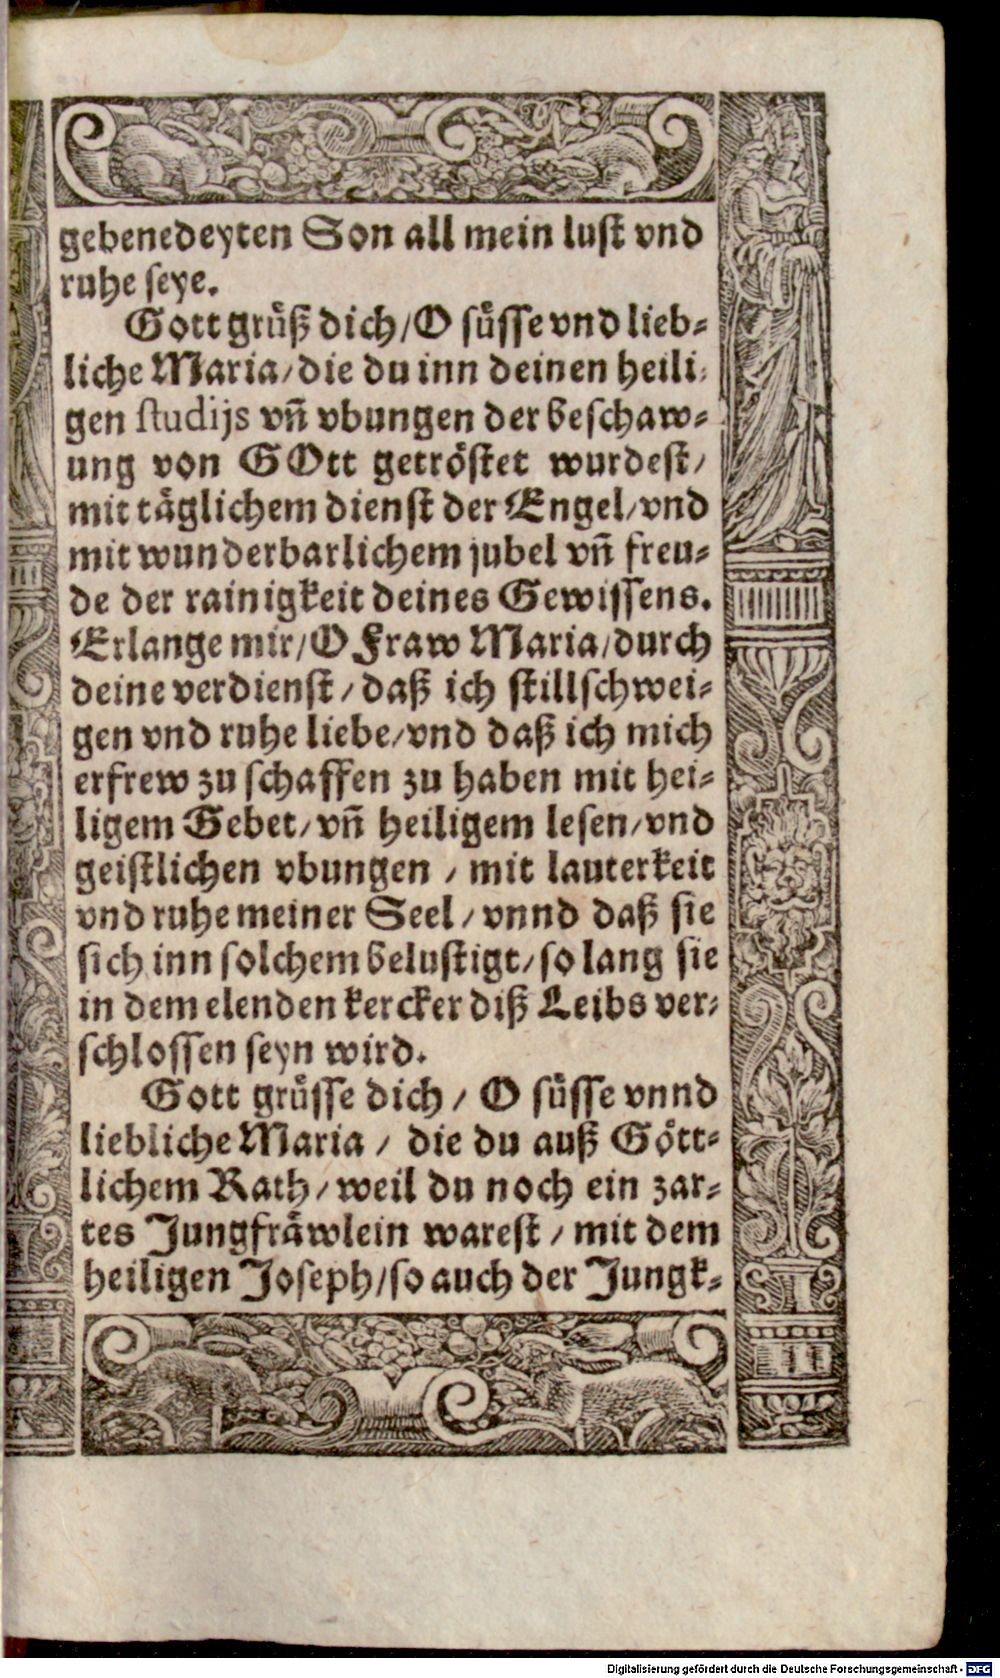 gebenedeyten Son all mein lust vnd
ruhe seye.
Gott grüß dich/O süsse vnd lieb-
liche Maria/die du inn deinen heili-
gen studijs vñ vbungen der beschaw-
ung von GOtt getröstet wurdest/
mit täglichem dienst der Engel/vnd
mit wunderbarlichem jubel vñ freu-
de der rainigkeit deines Gewissens.
Erlange mir/O Fraw Maria/durch
deine verdienst/daß ich stillschwei-
gen vnd ruhe liebe/vnd daß ich mich
erfrew zu schaffen zu haben mit hei-
ligem Gebet/vñ heiligem lesen/vnd
geistlichen vbungen/mit lauterkeit
vnd ruhe meiner Seel/vnnd daß sie
sich inn solchem belustigt/so lang sie
in dem elenden kercker diß Leibs ver-
schlossen seyn wird.
Gott grüsse dich/O süsse vnnd
liebliche Maria/die du auß Gött-
lichem Rath/weil du noch ein zar-
tes Jungfräwlein warest/mit dem
heiligen Joseph/so auch der Jungk-
Digitalisierung gefördert durch die Deutsche Forschungsgemeinschaft - DFG